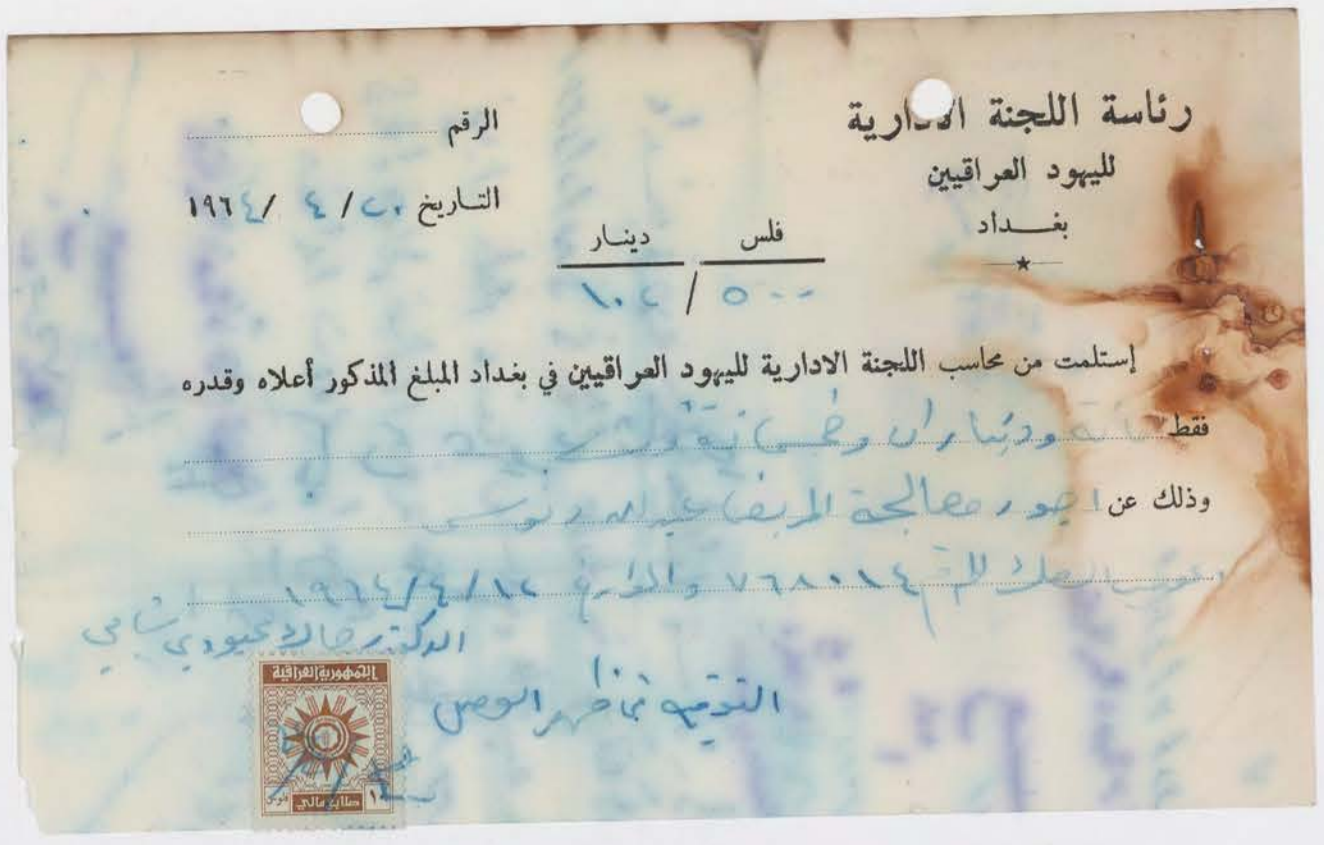 رئاسة اللجنة الادارية
لليهود العراقيين
بغـــداد
الرقم
التاريخ ٢٠ / ٤ / ١٩٦٤
فلس دينار
٥٠٠ / ١٠٢
إستلمت من محاسب اللجنة الادارية لليهود العراقيين في بغداد المبلغ المذكور أعلاه وقدره
فقط مائة وديناران وخمسمائة فلس
وذلك عن اجور معالجة المريض عبدالله
الصك المرقم ٧٦٨٠١٤ والمؤرخ ١٢/٤/١٩٦٤
الدكتور
التوقيع في ظهر الوصل
الجمهورية العراقية
طابع مالي